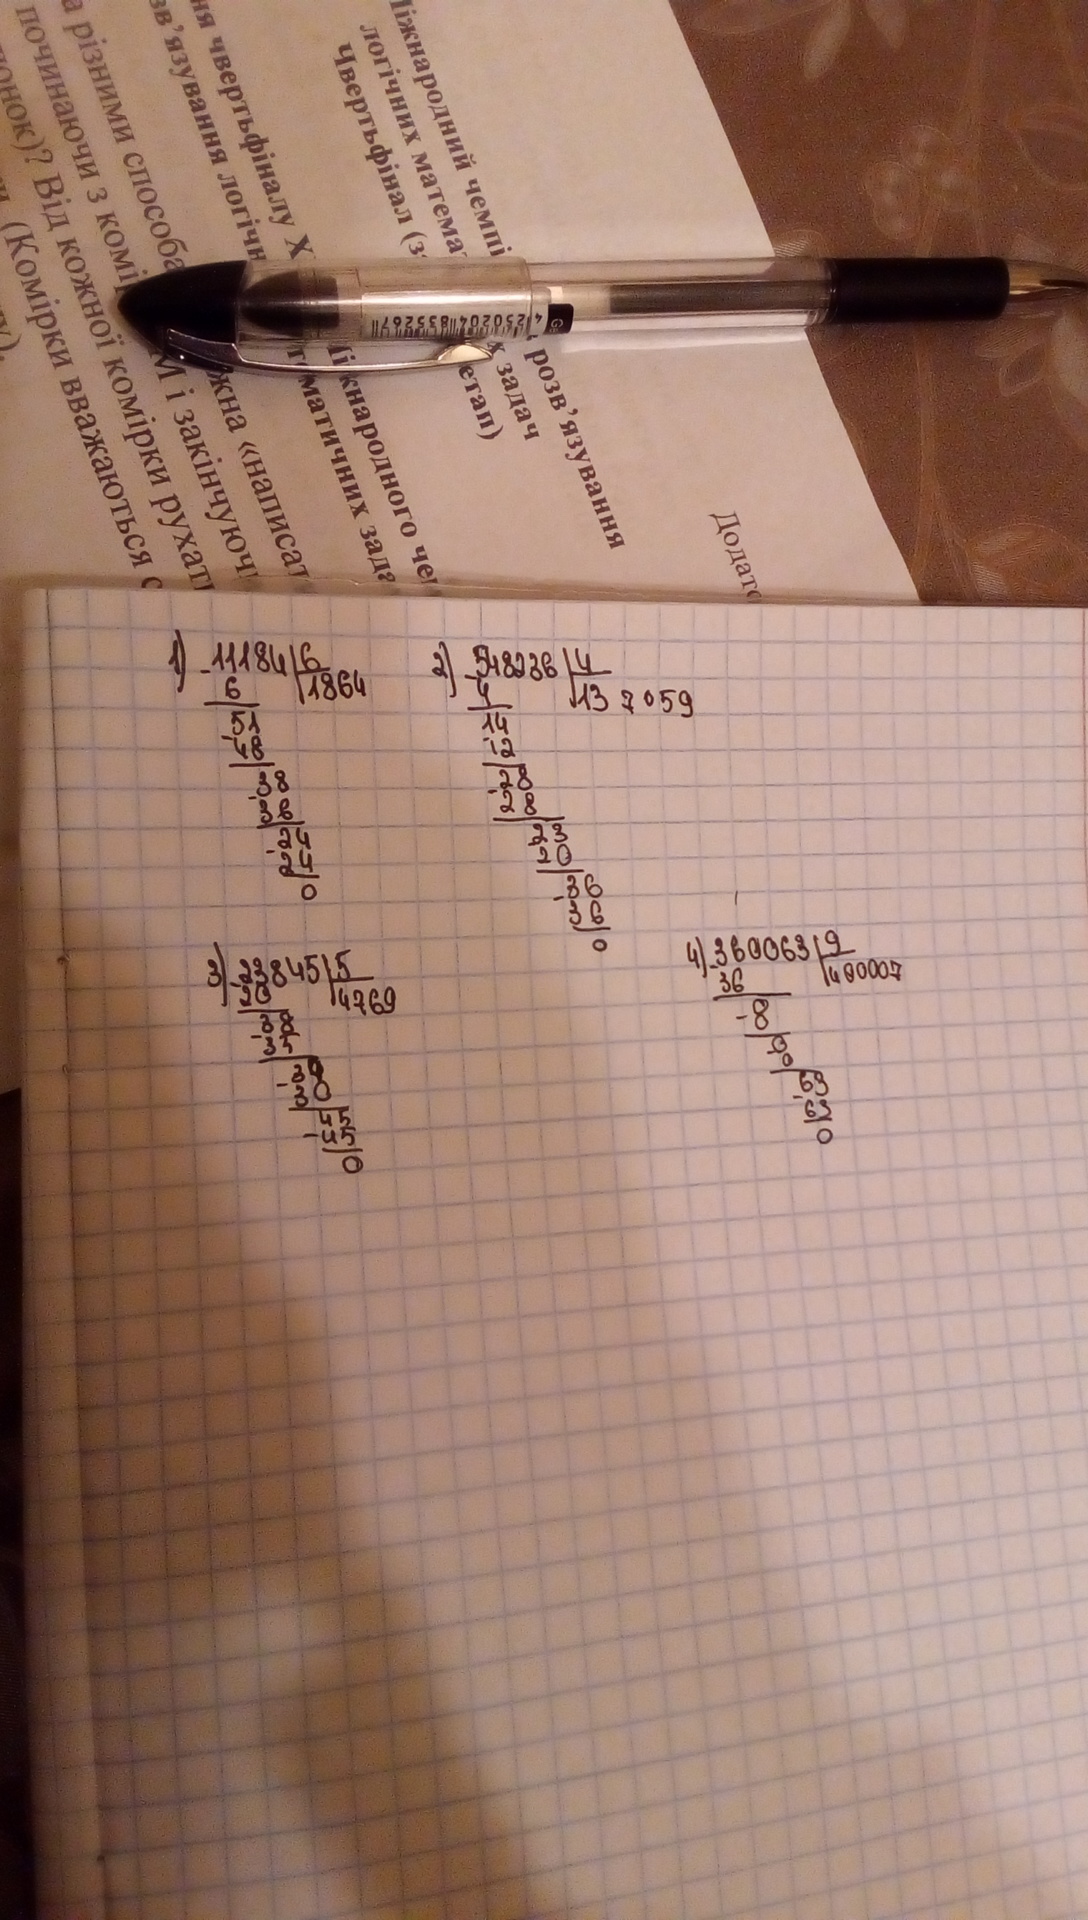 Додато
Міжнародний чемпі
розв’язування
логічних матема
х задач
Чвертьфінал (з
етап)
ня чвертьфіналу Х
іжнародного че
зв’язування логічн
тематичних зада
а різними способа
жна «написат
починаючи з комір
М і закінчуюч
понок)? Від кожної комірки рухати
(Комірки вважаються с
4 250204 835267
1) 11184 6
6 1864
51
48
38
36
24
24
0
2) 548236 4
4 137059
14
12
28
28
23
20
36
36
0
3) 23845 5
20 4769
38
35
34
30
45
45
0
4) 360063 9
36 400007
0
0
0
0
63
63
0